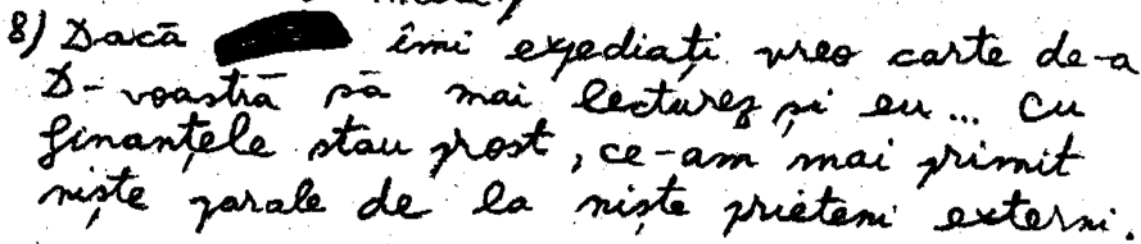 8) Dacă îmi expediați vreo carte de-a
D-voastră să mai lecturez și eu... Cu
finanțele stau prost, ce-am mai primit
niște parale de la niște prieteni externi.